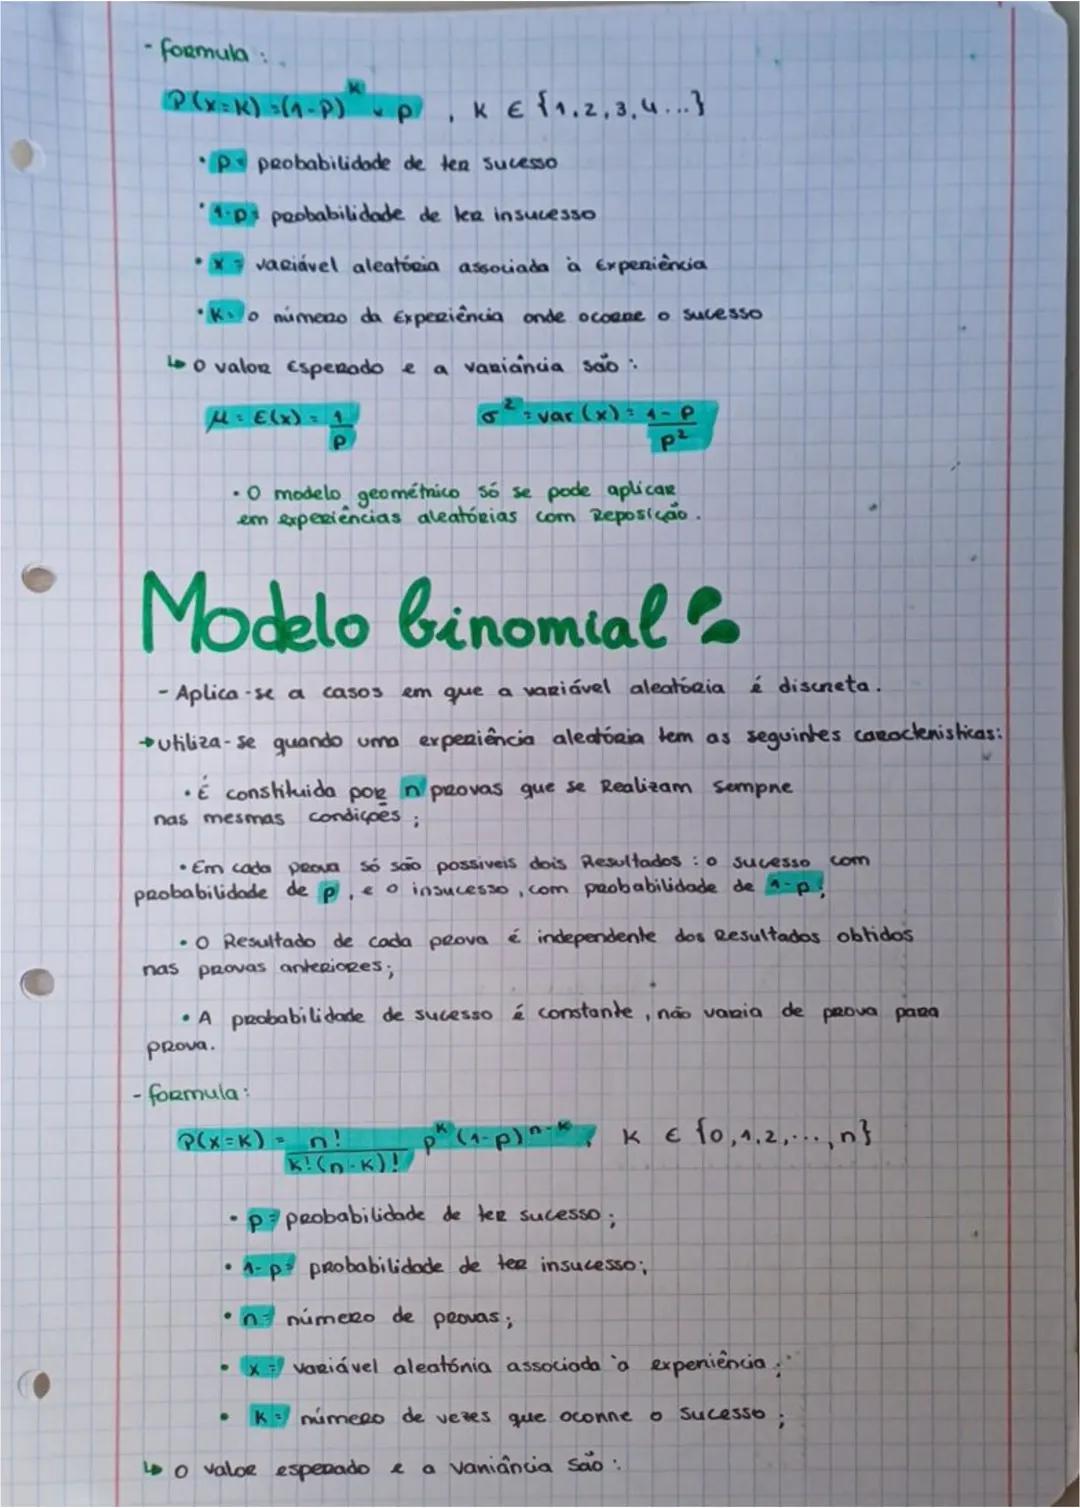 - formula :
P(x=K) =(1-P)^K × p , K ∈ {1,2,3,4...}
• p= probabilidade de ter sucesso
• 1-p= probabilidade de ter insucesso
• x = variável aleatória associada à experiência
• K= o número da experiência onde ocorre o sucesso
↳ o valor esperado e a variância são :
μ = E(x) = 1/p    σ² = var (x) = 1-p/p²
• O modelo geométrico só se pode aplicar
em experiências aleatórias com Reposição.
Modelo binomial
- Aplica-se a casos em que a variável aleatória é discreta.
→ utiliza-se quando uma experiência aleatória tem as seguintes caracteristicas:
• É constituida por n provas que se Realizam sempre
nas mesmas condições ;
• Em cada prova só são possiveis dois Resultados : o sucesso com
probabilidade de p , e o insucesso, com probabilidade de 1-p ;
• O Resultado de cada prova é independente dos Resultados obtidos
nas provas anteriores;
• A probabilidade de sucesso é constante, não varia de prova para
prova.
- formula :
P(x=K) = n!/K!(n-K)! p^K (1-p)^n-K , K ∈ {0,1,2,...,n}
• p= probabilidade de ter sucesso ;
• 1-p= probabilidade de ter insucesso;
• n= número de provas;
• x = variável aleatória associada à experiência ;
• K = número de vezes que ocorre o sucesso ;
↳ o valor esperado e a variância são :